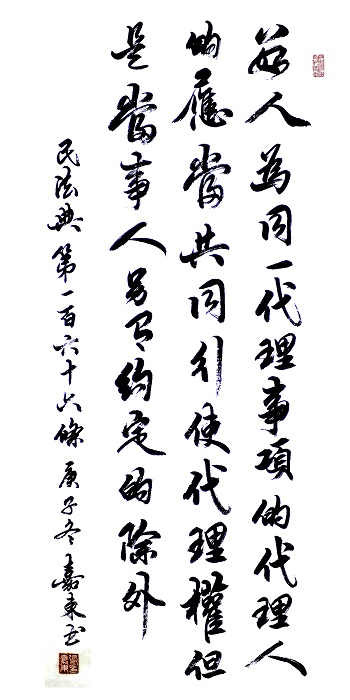 數人為同一代理事項的代理人
的應當共同行使代理權但
是當事人另有約定的除外
民法典第一百六十六條 庚子冬 嘉東书